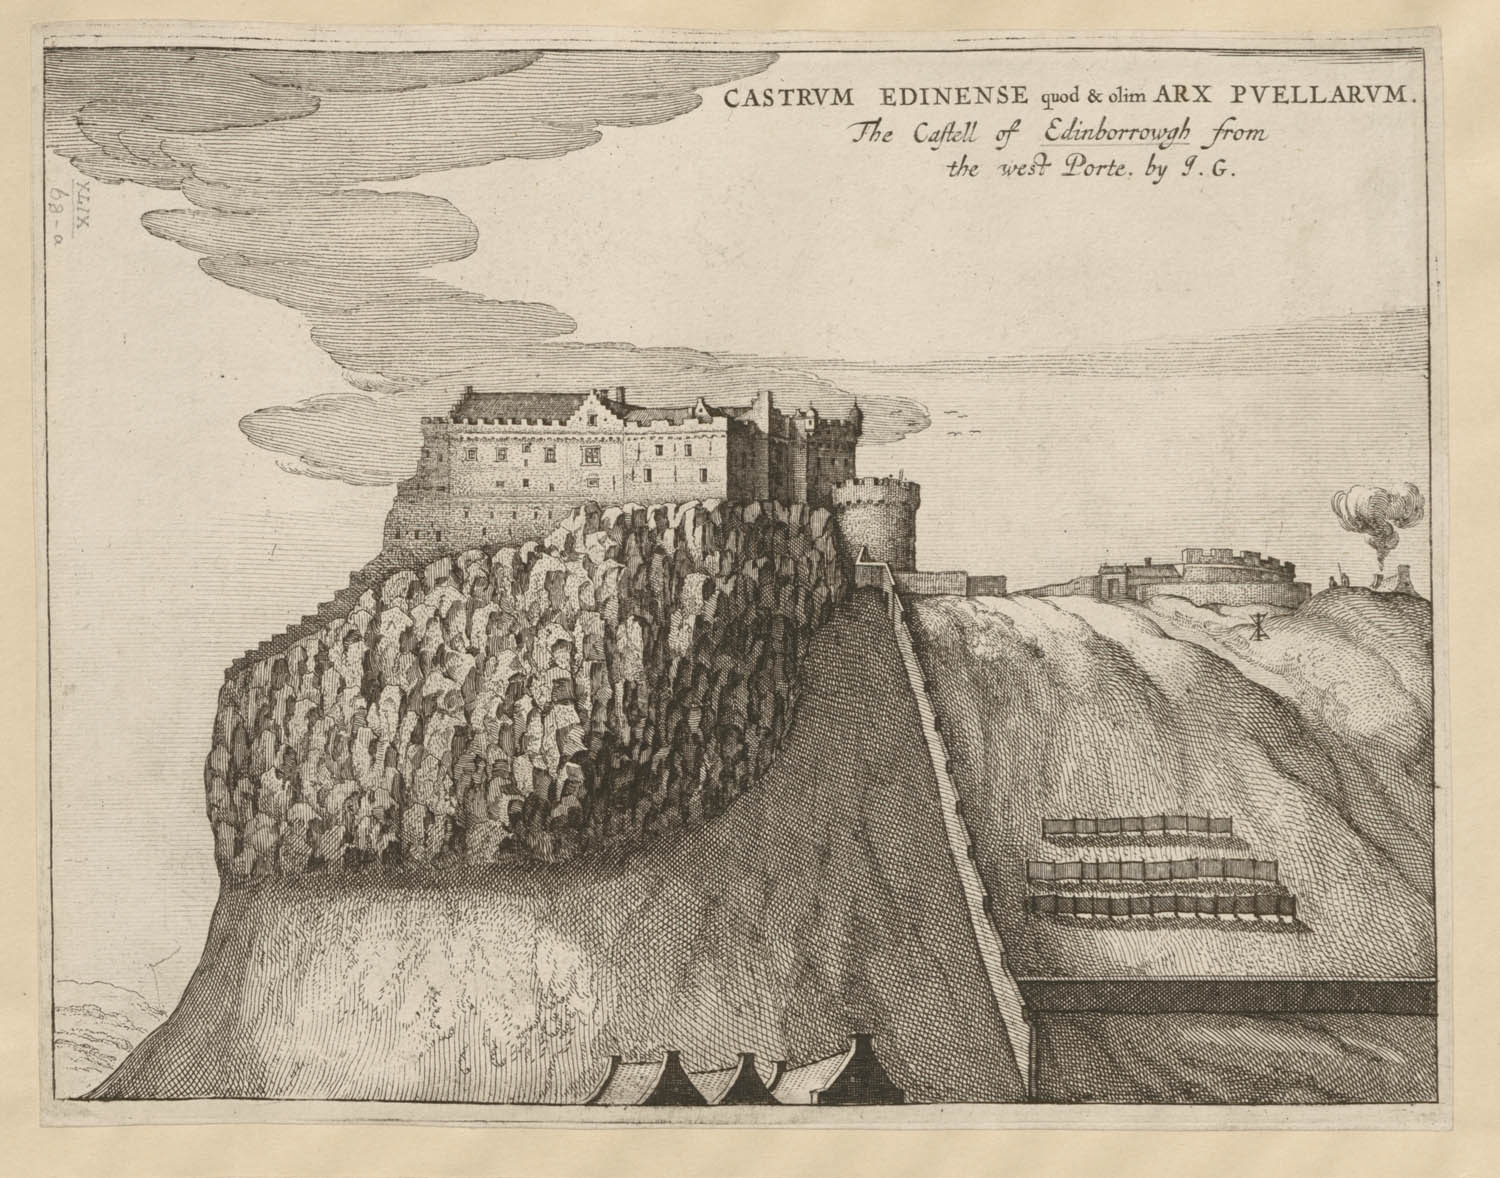 CASTRVM EDINENSE quod & olim ARX PVELLARVM.
The Caſtell of Edinborrowgh from
the west Porte. by J. G.
XLIX
68-a